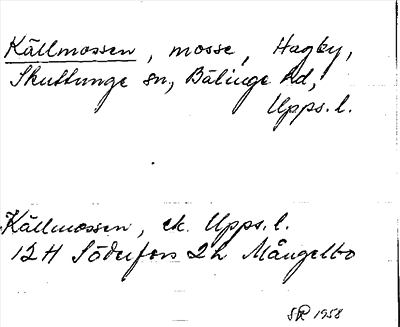 Källmossen, mosse, Hagby,
Skuttunge sn, Bälinge hd,
Upps. l.
Källmossen, ek. Upps. l.
12H Söderfors 2h Mångelbo
SR 1958